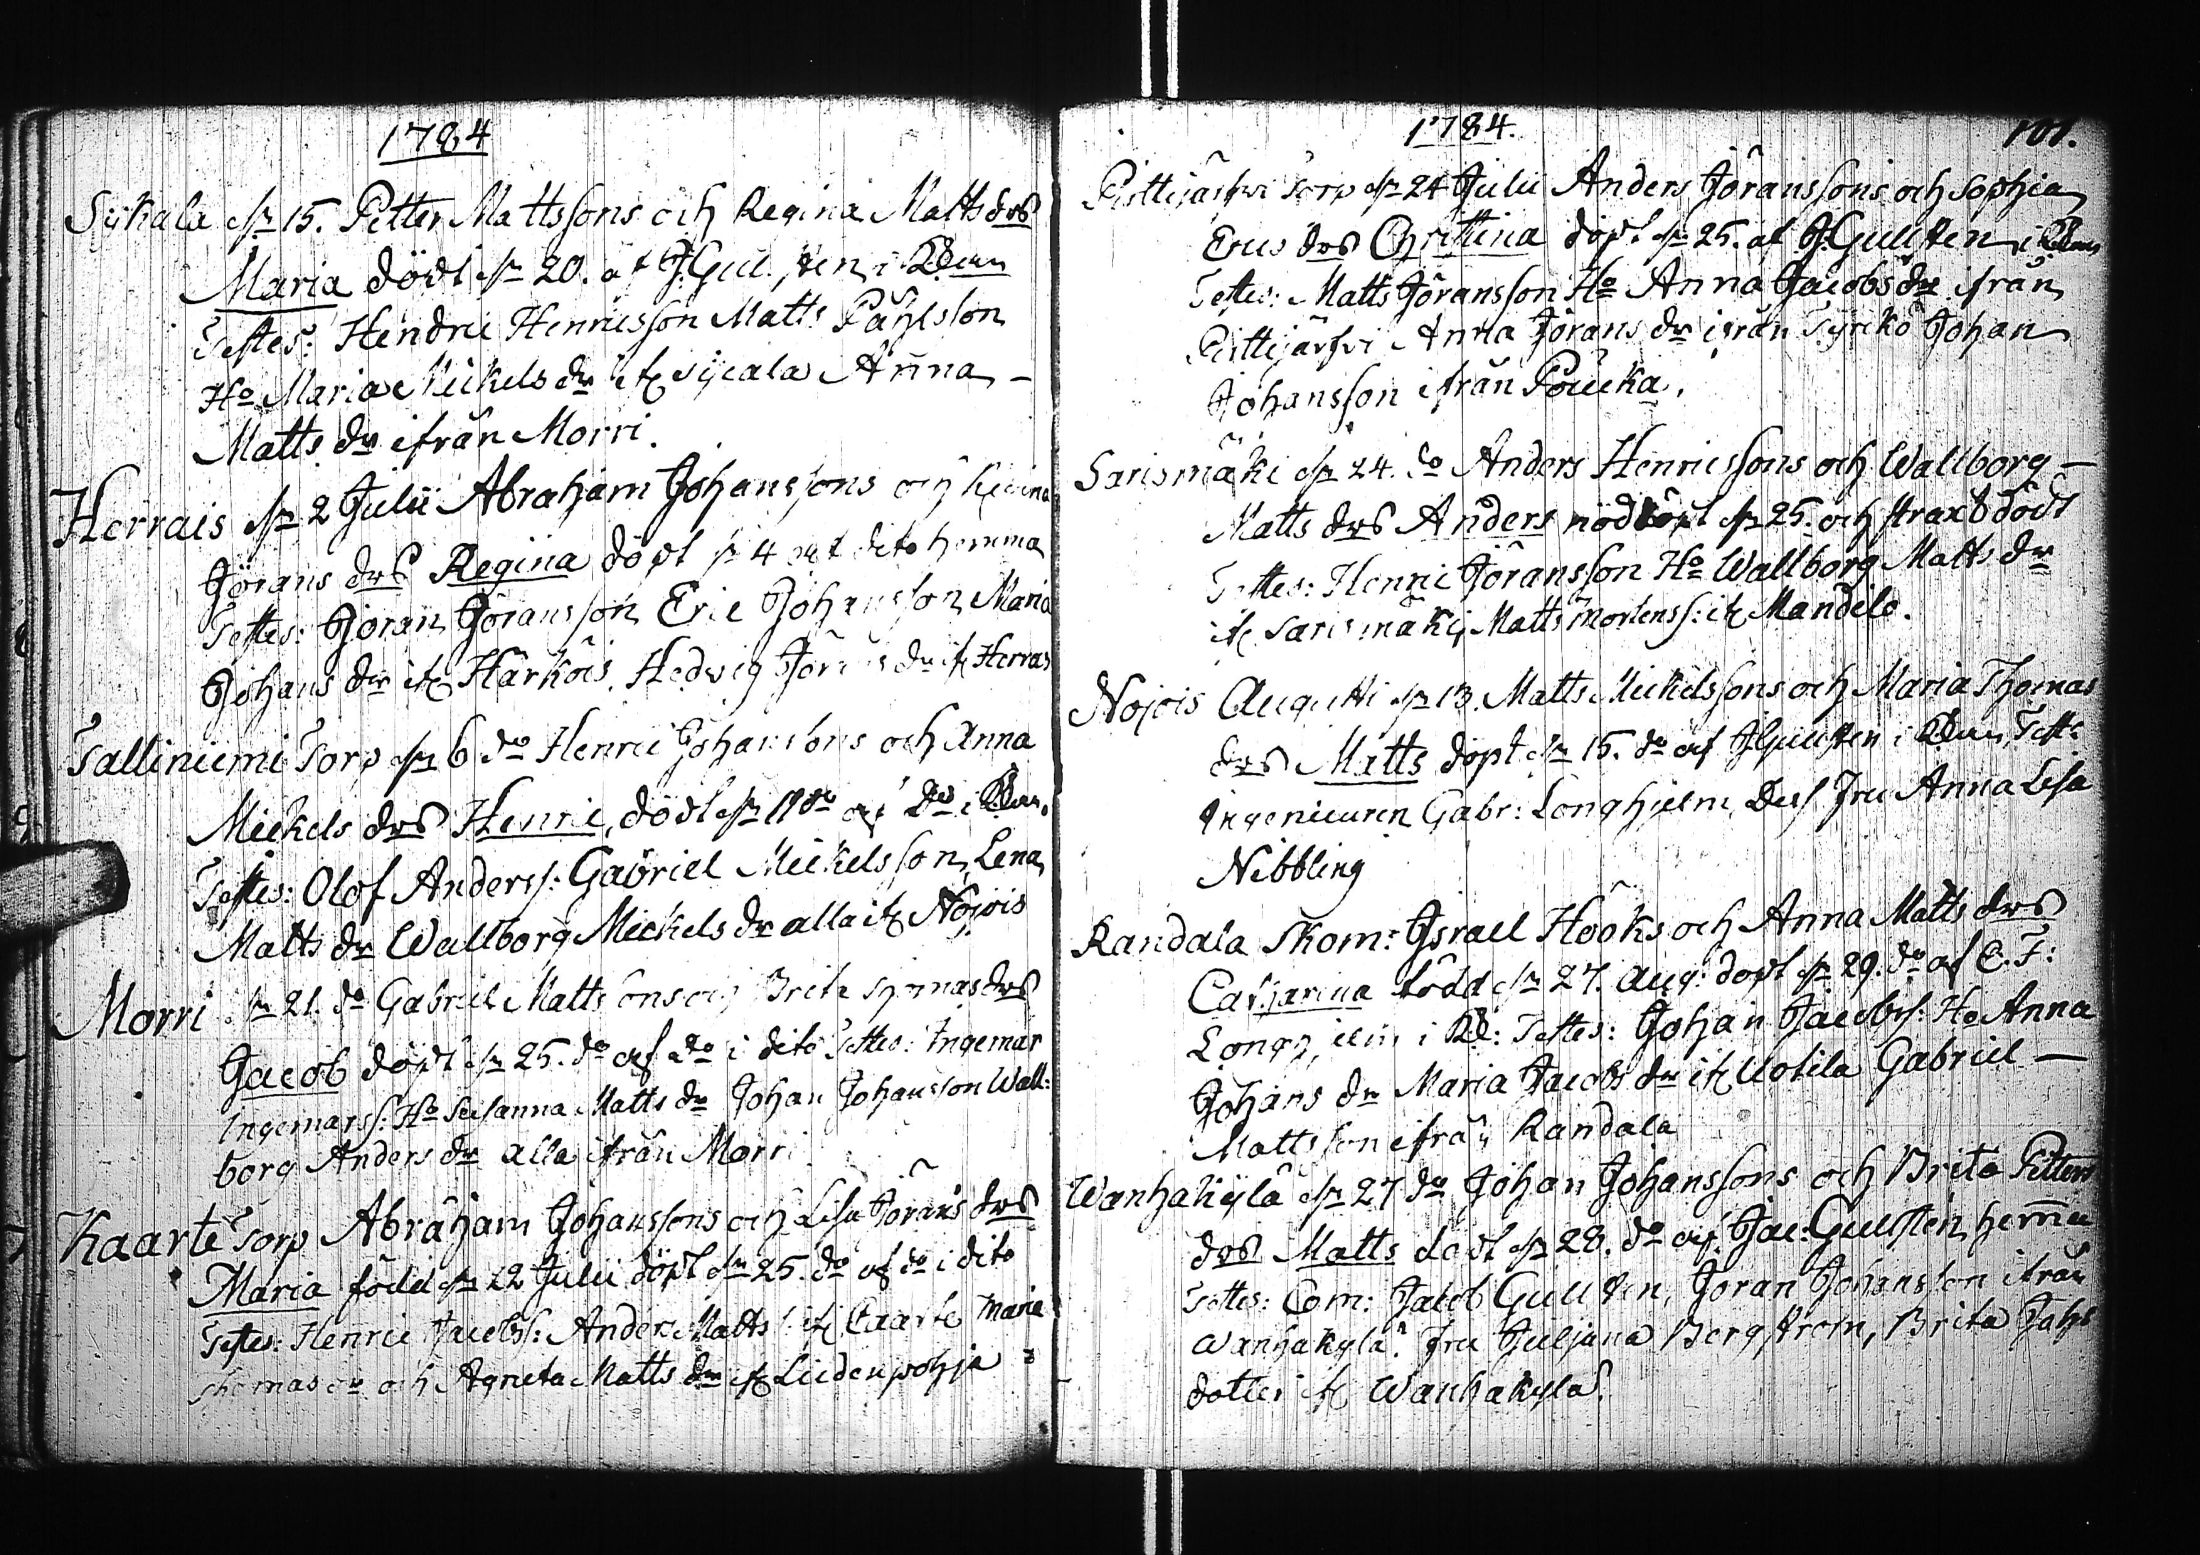 1784
Sykala d. 15. Petter Mattssons och Regina Matts drs
Maria döpt d. 20. af J. Gullsten i Kkan
Testes: Hendric Henricsson Matts Påhlsson
Ho Maria Mickels dr if. Sycala Anna –
Matts dr ifrån Morri.
Herrais d. 2 Julii Abraham Johanssons och Regina
Jörans drs Regina döpt d. 4 af dito hemma
Testes: Jöran Jöransson Eric Johansson Maria
Johans dr if. Härköis, Hedvig Jörans dr if. Herrais
Talliniemi Torp d. 6 do Henric Johanssons och Anna
Mickels drs Henric, döpt d. 11 do af Do i Kkan.
Testes: Olof Anderss: Gabriel Mickelsson, Lena
Matts dr Wallborg Mickels dr alla if. Nojois
Morri d. 21. do Gabriel Mattssons och Brita Thomas drs
Jacob döpt d. 25. do af do i dito Testes: Ingemar
Ingemarss: Ho Susanna Matts dr Johan Johansson Wall:
borg Anders dr alla ifrån Morri
Kaarte Torp Abraham Johanssons och Lisa Jörans drs
Maria född d. 22 Julii döpt d. 25. do af do i dito
Testes: Henric Jacobss: Anders Matts if. Caarte Maria
Thomas dr och Agneta Matts dr if. Liidenpohja
1784. 101.
Pisttijärfvi Torp d. 24 Julii Anders Jöranssons och Sophia
Erics drs Christina döpt d. 25. af J. Gullsten i Kkan
Testes: Matts Jöransson Ho Anna Jacobs dr ifrån
Pisttijärfvi Anna Jörans dr ifrån Tyrckö Johan
Johansson ifrån Poucka.
Sarismäki d. 24. do Anders Henricssons och Wallborg –
Matts drs Anders nöddöpt d. 25. och straxt död
Testes: Henric Jöransson Ho Wallborg Matts dr
if. Sarismäki, Matts Mortenss: if. Mandelo.
Nojois Augusti d. 13. Matts Mickelssons och Maria Thomas
drs Matts döpt d. 15. do af J. Gullsten i Kkan, Test:
Ingenieuren Gabr: Longhjelm, Dess Fru Anna Lisa
Nibbling
Randala Skom: Israel Hööks och Anna Matts drs
Catharina född d. 27. Aug: döpt d. 29. do af C. F:
Longhjelm i Kk: Testes: Johan Jacobss: Ho Anna
Johans dr Maria Jacobs dr if. Uotila Gabriel –
Mattsson ifrån Randala
Wanhakylä d. 27 do Johan Johanssons och Brita Petters
drs Matts döpt d. 28. do af Jac: Gullsten hemma
Testes: Com: Jacob Gullsten, Jöran Johansson ifrån
Wanhakylä. Fru Juljana Bergström, Brita Johs
dotter if. Wanhakylä.